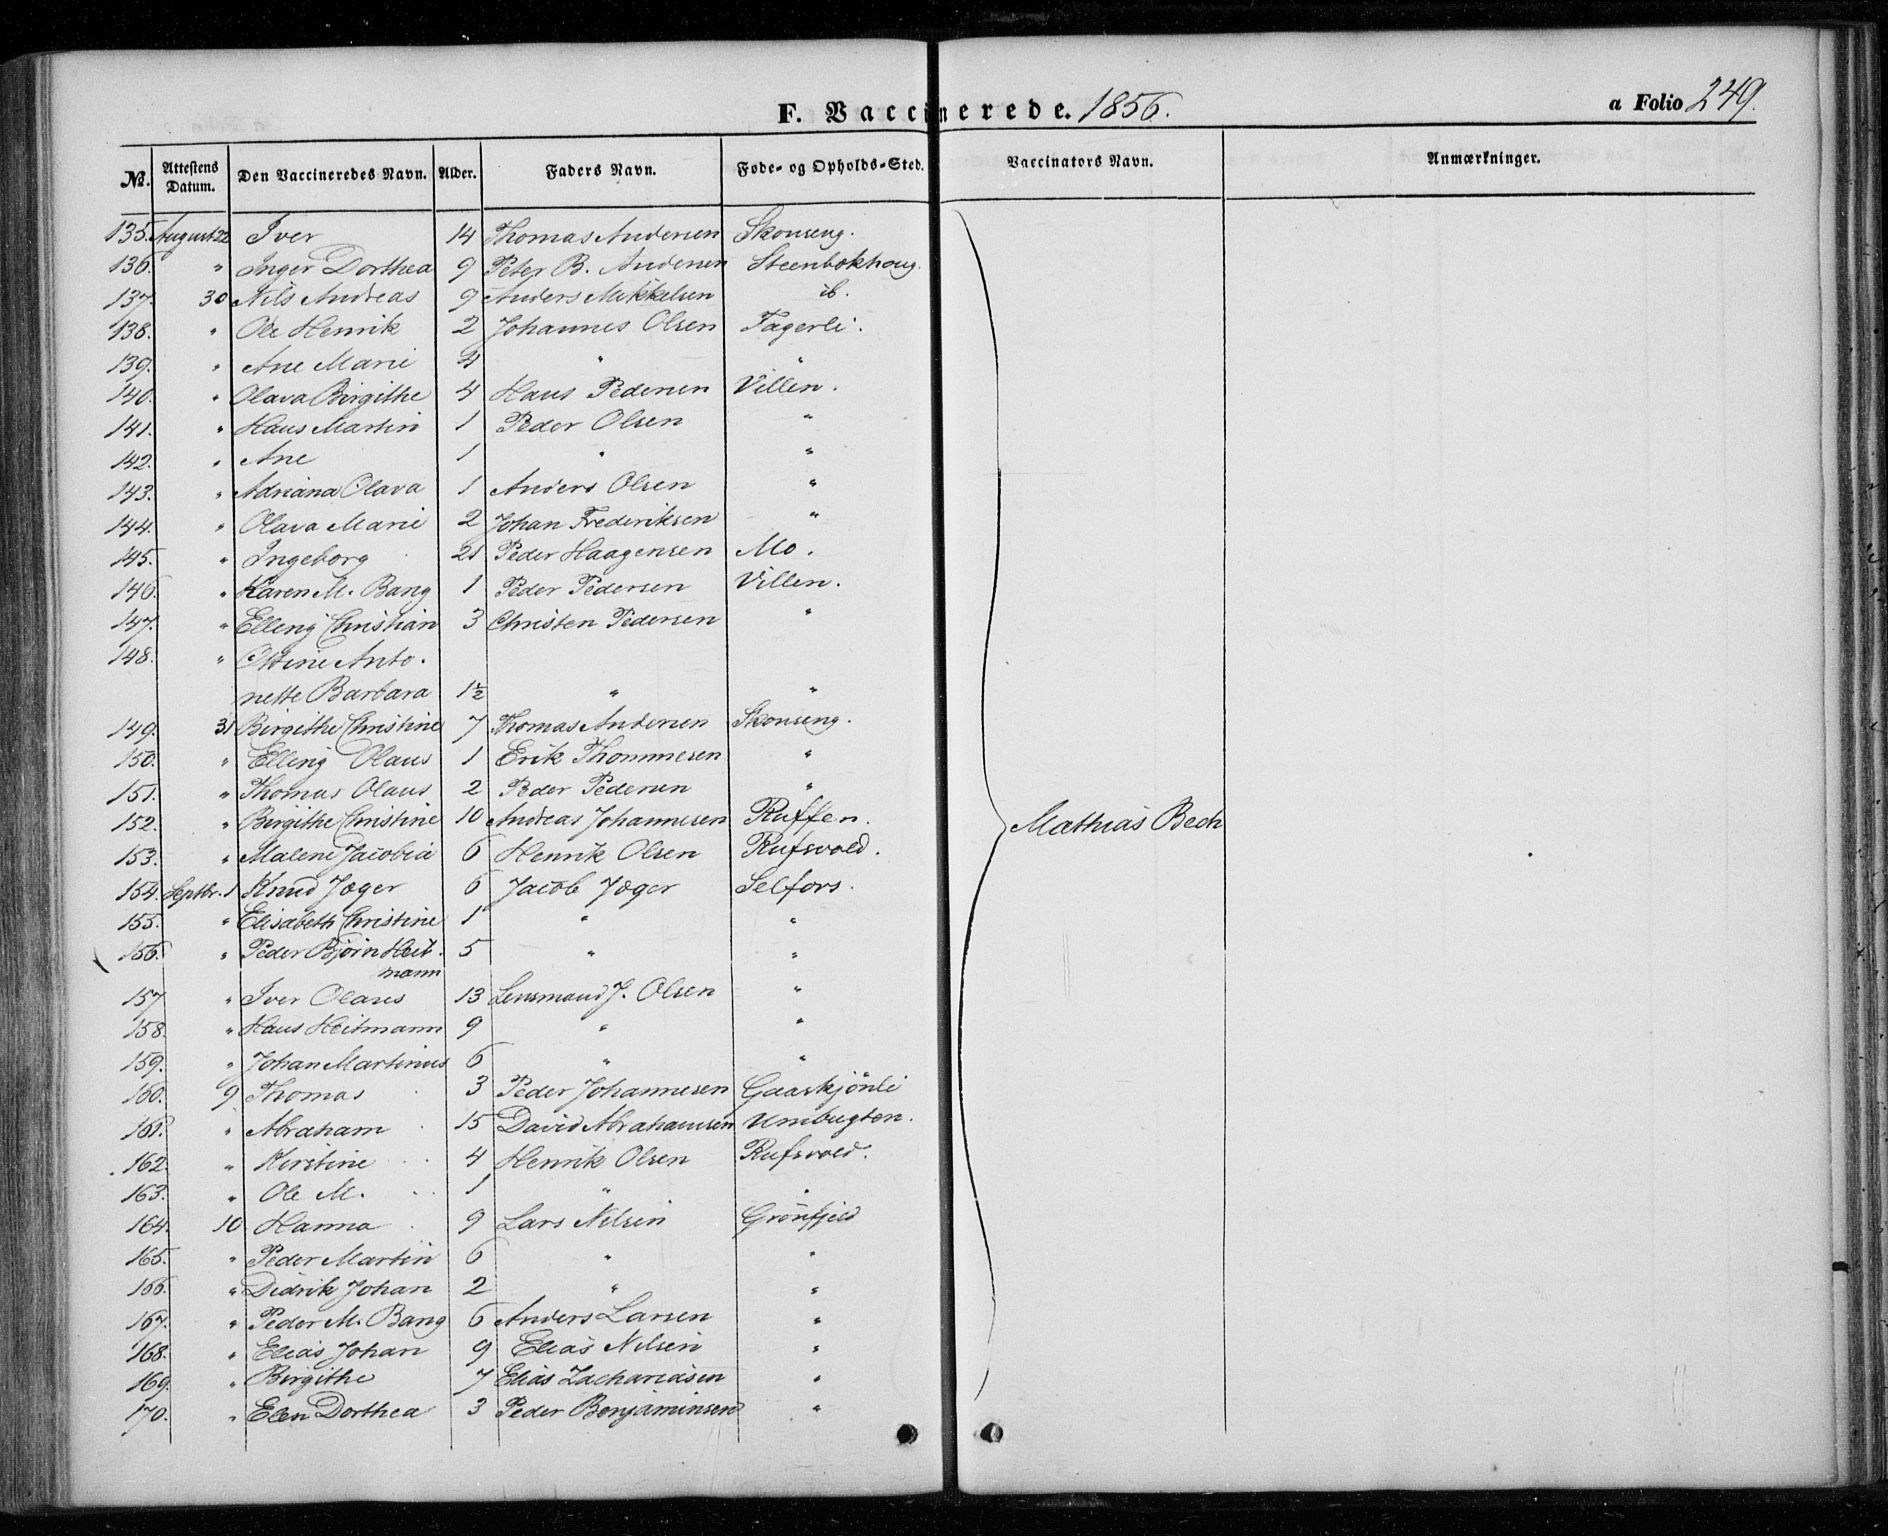 F. Vaccinerede. 1856.
a Folio 249.
No. Attestens Datum. Den Vaccineredes Navn. Alder. Faders Navn. Føde- og Opholds-Sted. Vaccinators Navn. Anmærkninger.
135. August 22 Iver 14 Thomas Andersen Skonseng.
136. " Inger Dorthea 9 Peter B. Andersen Steenbokhoug.
137. 30 Nils Andreas 9 Anders Mikkelsen ib.
138. " Ole Henrik 2 Johannes Olsen Fagerli.
139. " Ane Marie 4 " "
140. " Olava Birgithe 4 Hans Pedersen Villen.
141. " Hans Martin 1 Peder Olsen "
142. " Ane 1 " "
143. " Adriana Olava 1 Anders Olsen "
144. " Olava Marie 2 Johan Frederiksen "
145. " Ingeborg 21 Peder Haagensen Mo.
146. " Karen M. Bang 1 Peder Pedersen Villen.
147. " Elling Christian 3 Christen Pedersen "
148. " Ottine Anto-
nette Barbara 1½ " "
149. 31 Birgithe Christine 7 Thomas Andersen Skonseng.
150. " Elling Olaus 1 Erik Thommesen "
151. " Thomas Olaus 2 Peder Pedersen "
152. " Birgithe Christine 10 Andreas Johannesen Ruffen. Mathias Bech
153. " Malene Jacobia 6 Henrik Olsen Rufsvold.
154. Septbr. 1 Knud Jæger 6 Jacob Jæger Selfors.
155. " Elisabeth Christine 1 " "
156. " Peder Bjørn Heit-
mann 5 " "
157 " Iver Olaus 13 Lensmand J. Olsen "
158. " Hans Heitmann 9 " "
159. " Johan Martinus 6 " "
160. 9 Thomas 3 Peder Johannesen Gaaskjönli
161. " Abraham 15 David Abrahamsen Umbugten.
162. " Kirstine 4 Henrik Olsen Rufsvold.
163. " Ole M. 1 " "
164. 10 Hanna 9 Lars Nilsen Grönfjeld
165. " Peder Martin 6 " "
166. " Didrik Johan 2 " "
167. " Peder M. Bang 6 Anders Larsen "
168. " Elias Johan 9 Elias Nilsen "
169. " Birgithe 7 Elias Zachariasen "
170. " Elen Dorthea 3 Peder Benjaminsen "